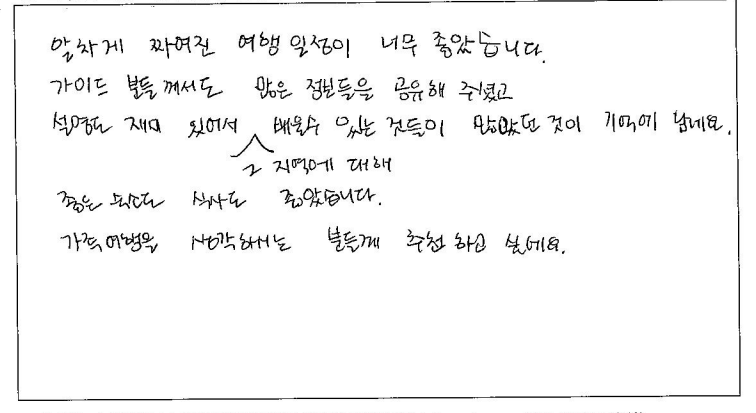 알차게 짜여진 여행 일정이 너무 좋았습니다.
가이드 분들께서도 많은 정보들을 공유해 주셨고
설명도 재미 있어서 배울수 있는 것들이 많았던 것이 기억에 남네요.
그 지역에 대해
좋은 식사도 좋았습니다.
가족여행을 생각하시는 분들께 추천 하고 싶네요.